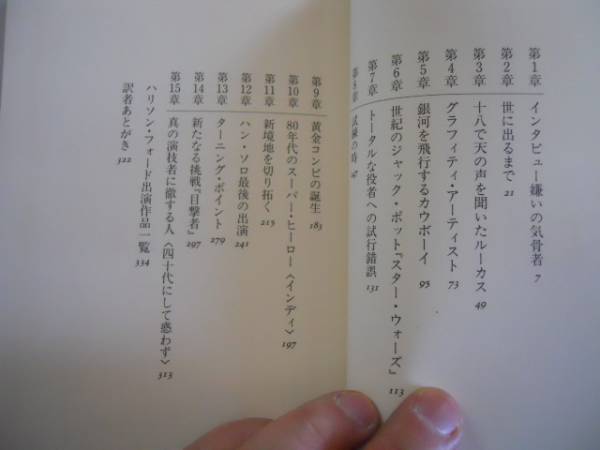 第1章 インタビュー嫌いの気骨者 7
第2章 世に出るまで 21
第3章 十八で天の声を聞いたルーカス 49
第4章 グラフィティ・アーティスト 73
第5章 銀河を飛行するカウボーイ 95
第6章 世紀のジャック・ポット『スター・ウォーズ』 113
第7章 トータルな役者への試行錯誤 131
第8章 試練の時
第9章 黄金コンビの誕生 183
第10章 80年代のスーパー・ヒーロー〈インディ〉 197
第11章 新境地を切り拓く 215
第12章 ハン・ソロ最後の出演 241
第13章 ターニング・ポイント 279
第14章 新たなる挑戦『目撃者』 297
第15章 真の演技者に徹する人〈四十代にして惑わず〉 313
ハリソン・フォード出演作品一覧 334
訳者あとがき 322